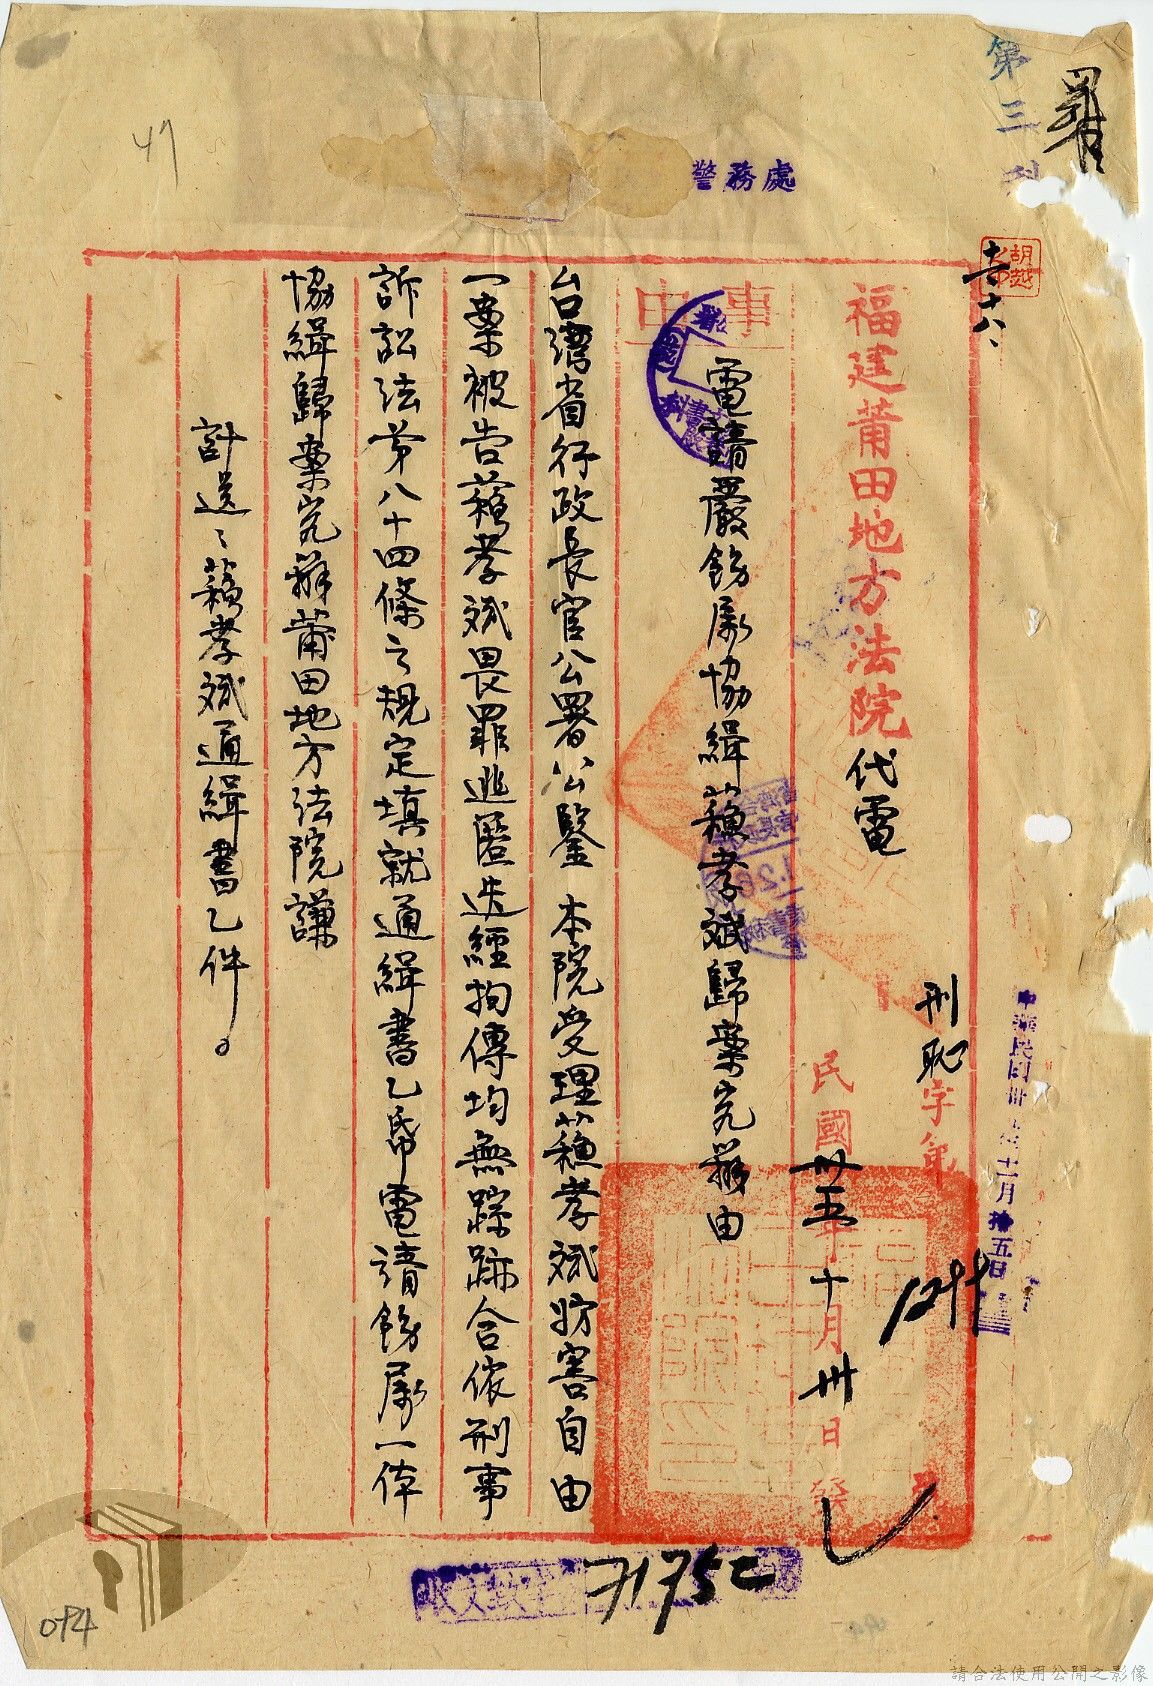 第三科
警務處
十一 十八、
胡越
福建莆田地方法院代電
刑 字第1244號
民國卅五年十月卅日發
中華民國卅 年十一月拾五日
事由
電請嚴飭屬協緝蘓孝斌歸案究辦由
台灣省行政長官公署公鑒 本院受理蘓孝斌妨害自由
一案被告蘓孝斌畏罪逃匿迭經拘傳均無踪跡合依刑事
訴訟法第八十四條之規定填就通緝書乙帋電請飭屬一体
協緝歸案究辦莆田地方法院謙
計送：蘓孝斌通緝書乙件。
收文
71752
47
094
請合法使用公開之影像